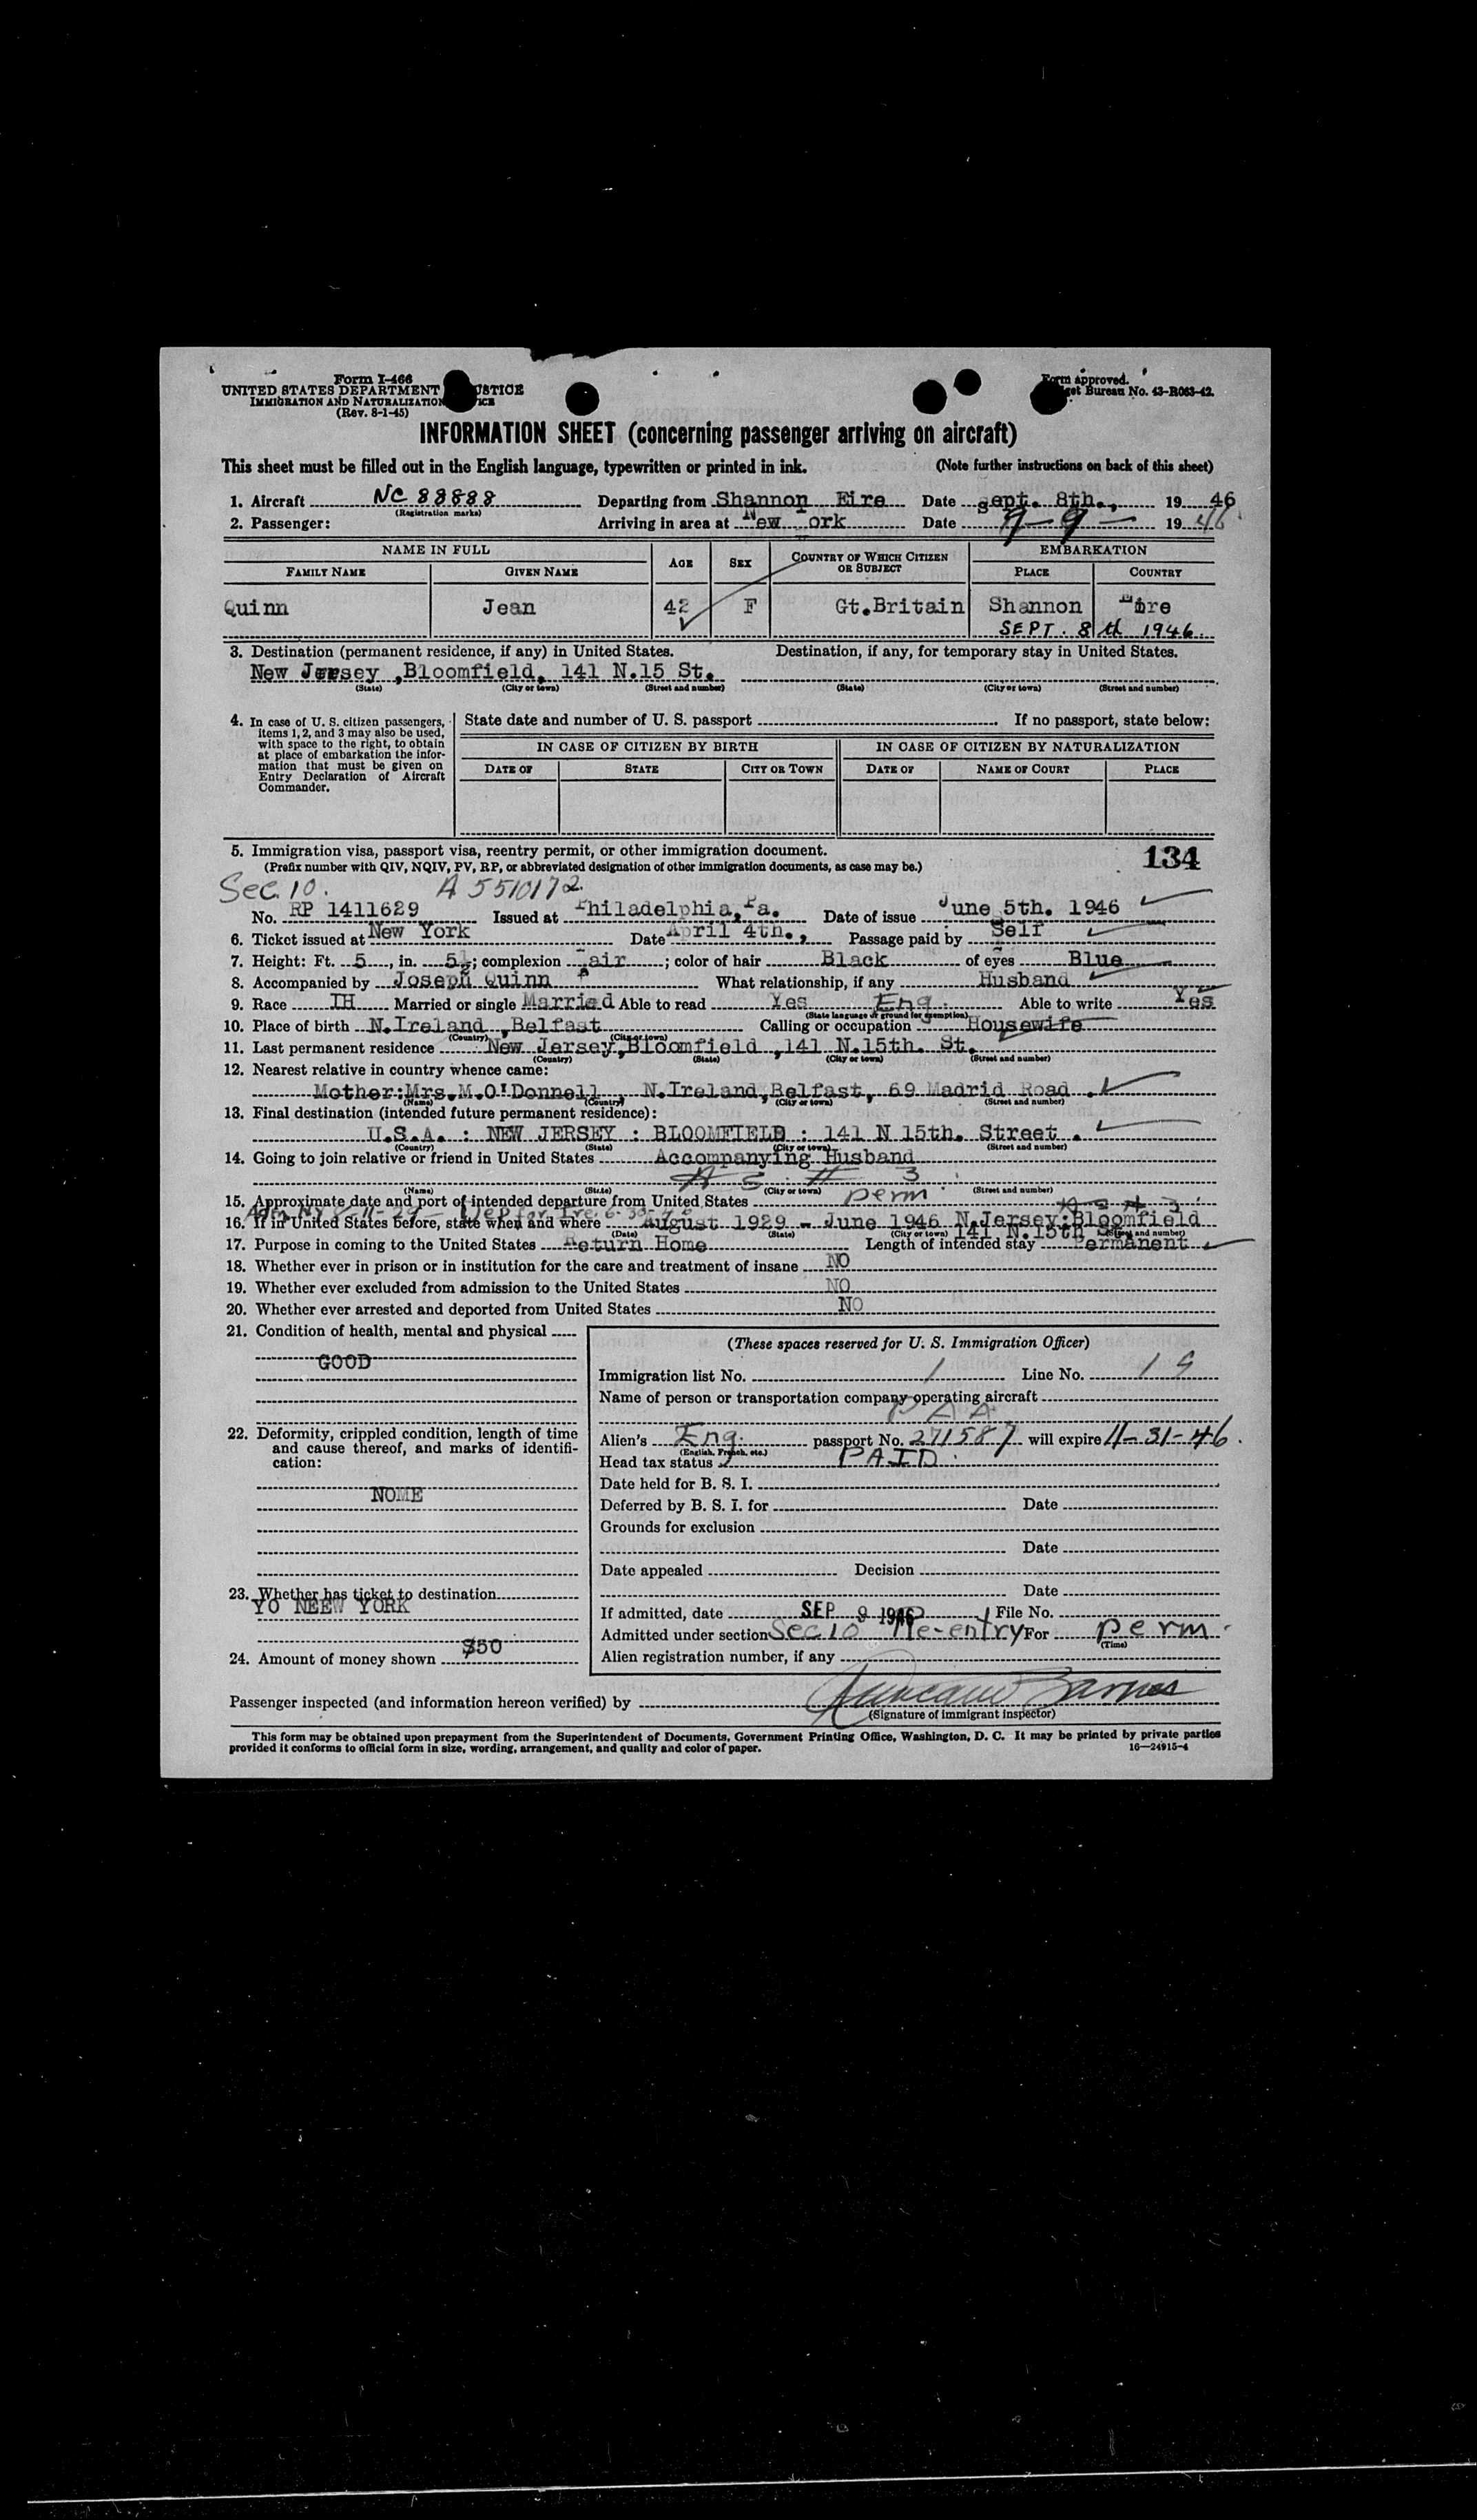 Form I-466
UNITED STATES DEPARTMENT JUSTICE
IMMIGRATION AND NATURALIZATION
(Rev. 8-1-45)
Form approved.
Bureau No. 43-R063-42.
INFORMATION SHEET (concerning passenger arriving on aircraft)
This sheet must be filled out in the English language, typewritten or printed in ink. (Note further instructions on back of this sheet)
1. Aircraft NC 88888 Departing from Shannon Eire Date sept. 8th., 1946
(Registration marks)
2. Passenger: Arriving in area at New ork Date 9-9- 1946
NAME IN FULL AGE SEX COUNTRY OF WHICH CITIZEN OR SUBJECT EMBARKATION
FAMILY NAME GIVEN NAME PLACE COUNTRY
Quinn Jean 42 F Gt.Britain Shannon Eire
SEPT. 8th 1946.
3. Destination (permanent residence, if any) in United States. Destination, if any, for temporary stay in United States.
New Jersey ,Bloomfield, 141 N.15 St.
(State) (City or town) (Street and number) (State) (City or town) (Street and number)
4. In case of U. S. citizen passengers, items 1, 2, and 3 may also be used, with space to the right, to obtain at place of embarkation the information that must be given on Entry Declaration of Aircraft Commander.
State date and number of U. S. passport If no passport, state below:
IN CASE OF CITIZEN BY BIRTH IN CASE OF CITIZEN BY NATURALIZATION
DATE OF STATE CITY OR TOWN DATE OF NAME OF COURT PLACE
5. Immigration visa, passport visa, reentry permit, or other immigration document.
(Prefix number with QIV, NQIV, PV, RP, or abbreviated designation of other immigration documents, as case may be.) 134
Sec. 10. A 5510172
No. RP 1411629 Issued at Philadelphia, Pa. Date of issue June 5th. 1946
6. Ticket issued at New York Date April 4th., Passage paid by Self
7. Height: Ft. 5, in. 5½; complexion Fair; color of hair Black of eyes Blue
8. Accompanied by Joseph Quinn What relationship, if any Husband
9. Race IH Married or single Married Able to read Yes Eng. Able to write Yes
(State language or ground for exemption)
10. Place of birth N.Ireland ,Belfast Calling or occupation Housewife
(Country) (City or town)
11. Last permanent residence New Jersey,Bloomfield ,141 N.15th. St.
(Country) (State) (City or town) (Street and number)
12. Nearest relative in country whence came:
Mother:Mrs.M.O'Donnell , N.Ireland,Belfast, 69 Madrid Road .
(Name) (Country) (City or town) (Street and number)
13. Final destination (intended future permanent residence):
U.S.A. : NEW JERSEY : BLOOMFIELD : 141 N 15th. Street .
(Country) (State) (City or town) (Street and number)
14. Going to join relative or friend in United States Accompanying Husband
As # 3
(Name) (State) (City or town) (Street and number)
15. Approximate date and port of intended departure from United States perm. As # 3
Adm NY 8-11-29 - Dep for Ire. 6-30-46
16. If in United States before, state when and where August 1929 - June 1946 N.Jersey:Bloomfield
(Date) (State) (City or town) 141 N.15th St. (Street and number)
17. Purpose in coming to the United States Return Home Length of intended stay Permanent
18. Whether ever in prison or in institution for the care and treatment of insane NO
19. Whether ever excluded from admission to the United States NO
20. Whether ever arrested and deported from United States NO
21. Condition of health, mental and physical
GOOD
22. Deformity, crippled condition, length of time and cause thereof, and marks of identification:
NOME
23. Whether has ticket to destination
YO NEEW YORK
24. Amount of money shown $50
(These spaces reserved for U. S. Immigration Officer)
Immigration list No. 1 Line No. 19
Name of person or transportation company operating aircraft
PAA
Alien's Eng. passport No. 271587 will expire 11-31-46.
(English, French, etc.)
Head tax status PAID.
Date held for B. S. I.
Deferred by B. S. I. for Date
Grounds for exclusion
Date
Date appealed Decision
Date
If admitted, date SEP 9 1946 File No.
Admitted under section Sec 10 Re-entry For perm.
(Time)
Alien registration number, if any
Passenger inspected (and information hereon verified) by Duncan Barnes
(Signature of immigrant inspector)
This form may be obtained upon prepayment from the Superintendent of Documents, Government Printing Office, Washington, D. C. It may be printed by private parties
provided it conforms to official form in size, wording, arrangement, and quality and color of paper. 16—24915-4